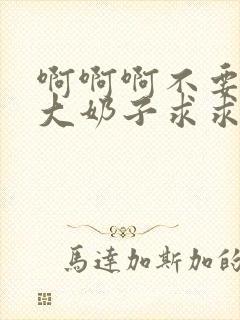 啊啊啊不要
大奶子求求
馬達加斯加的